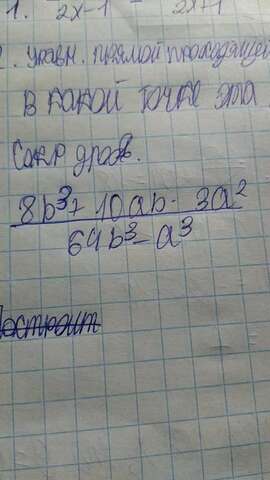 1. 2x-1 2x+1
2. уравн. прямой проходящей
в какой точке эта
Сокр дробь.
8b³+ 10ab - 3a²
64b³-a³
Построит